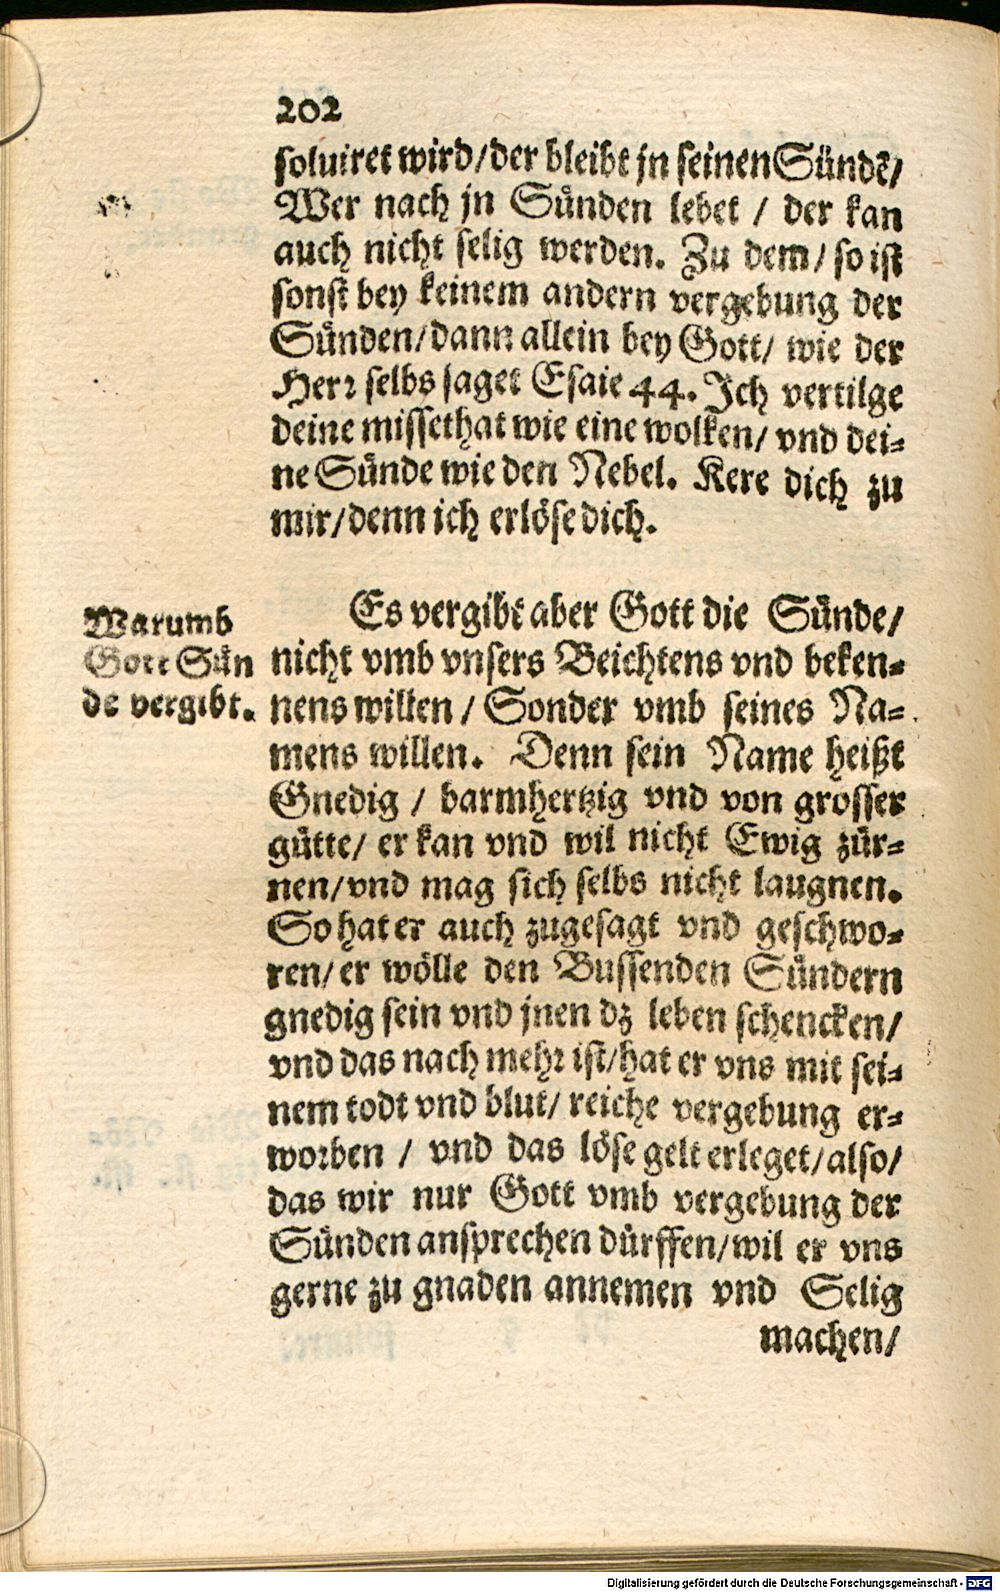 202
soluiret wird/der bleibt jn seinen Sündē/
Wer nach jn Sünden lebet / der kan
auch nicht selig werden. Zu dem/ so ist
sonst bey keinem andern vergebung der
Sünden/dann allein bey Gott/ wie der
Herr selbs saget Esaie 44. Ich vertilge
deine missethat wie eine wolken/ vnd dei-
ne Sünde wie den Nebel. Kere dich zu
mir/denn ich erlöse dich.
Warumb
Gott Sün
de vergibt.
Es vergibt aber Gott die Sünde/
nicht vmb vnsers Beichtens vnd beken-
nens willen / Sonder vmb seines Na-
mens willen. Denn sein Name heißt
Gnedig / barmhertzig vnd von grosser
gütte/ er kan vnd wil nicht Ewig zür-
nen/vnd mag sich selbs nicht laugnen.
So hat er auch zugesagt vnd geschwo-
ren/ er wölle den Bussenden Sündern
gnedig sein vnd jnen dz leben schencken/
vnd das nach mehr ist/hat er vns mit sei-
nem todt vnd blut/ reiche vergebung er-
worben / vnd das löse gelt erleget/also/
das wir nur Gott vmb vergebung der
Sünden ansprechen dürffen/wil er vns
gerne zu gnaden annemen vnd Selig
machen/
Digitalisierung gefördert durch die Deutsche Forschungsgemeinschaft - DFG